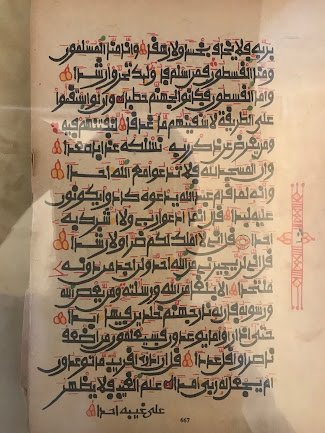 بربه فلا يخاف بخسا ولا رهقا وانا منا المسلمون
ومنا القسطون فمن اسلم فاوليك تحروا رشدا
واما القسطون فكانوا لجهنم حطبا وان لو استقموا
على الطريقة لاسقينهم ما غدقا لنفتنهم فيه
ومن يعرض عن ذكر ربه نسلكه عذابا صعدا
وان المسجد لله فلا تدعوا مع الله احدا
وانه لما قام عبد الله يدعوه كادوا يكونون
عليه لبدا قال انما ادعوا ربي ولا اشرك به
احدا قل اني لا املك لكم ضرا ولا رشدا
قل اني لن يجيرني من الله احد ولن اجد من دونه
ملتحدا الا بلغا من الله ورسلته ومن يعص الله
ورسوله فان له نار جهنم خلدين فيها ابدا
حتى اذا راوا ما يوعدون فسيعلمون من اضعف
ناصرا واقل عددا قل ان ادري اقريب ما توعدون
ام يجعل له ربي امدا علم الغيب فلا يظهر
على غيبه احدا
667